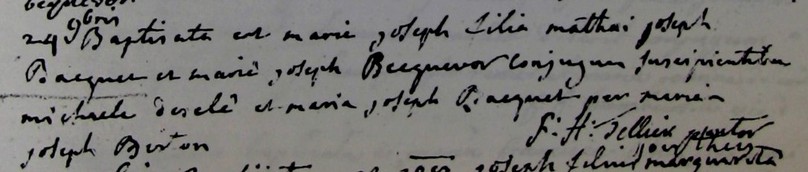 24 9bris Baptisata est marie joseph filia mathai joseph
Bacquet et marie joseph Becquevor conjugum suscipientibus
michaele deselé et maria joseph Bacquet per maria
joseph Berton
F: H: Tellier pastor
joseph filius